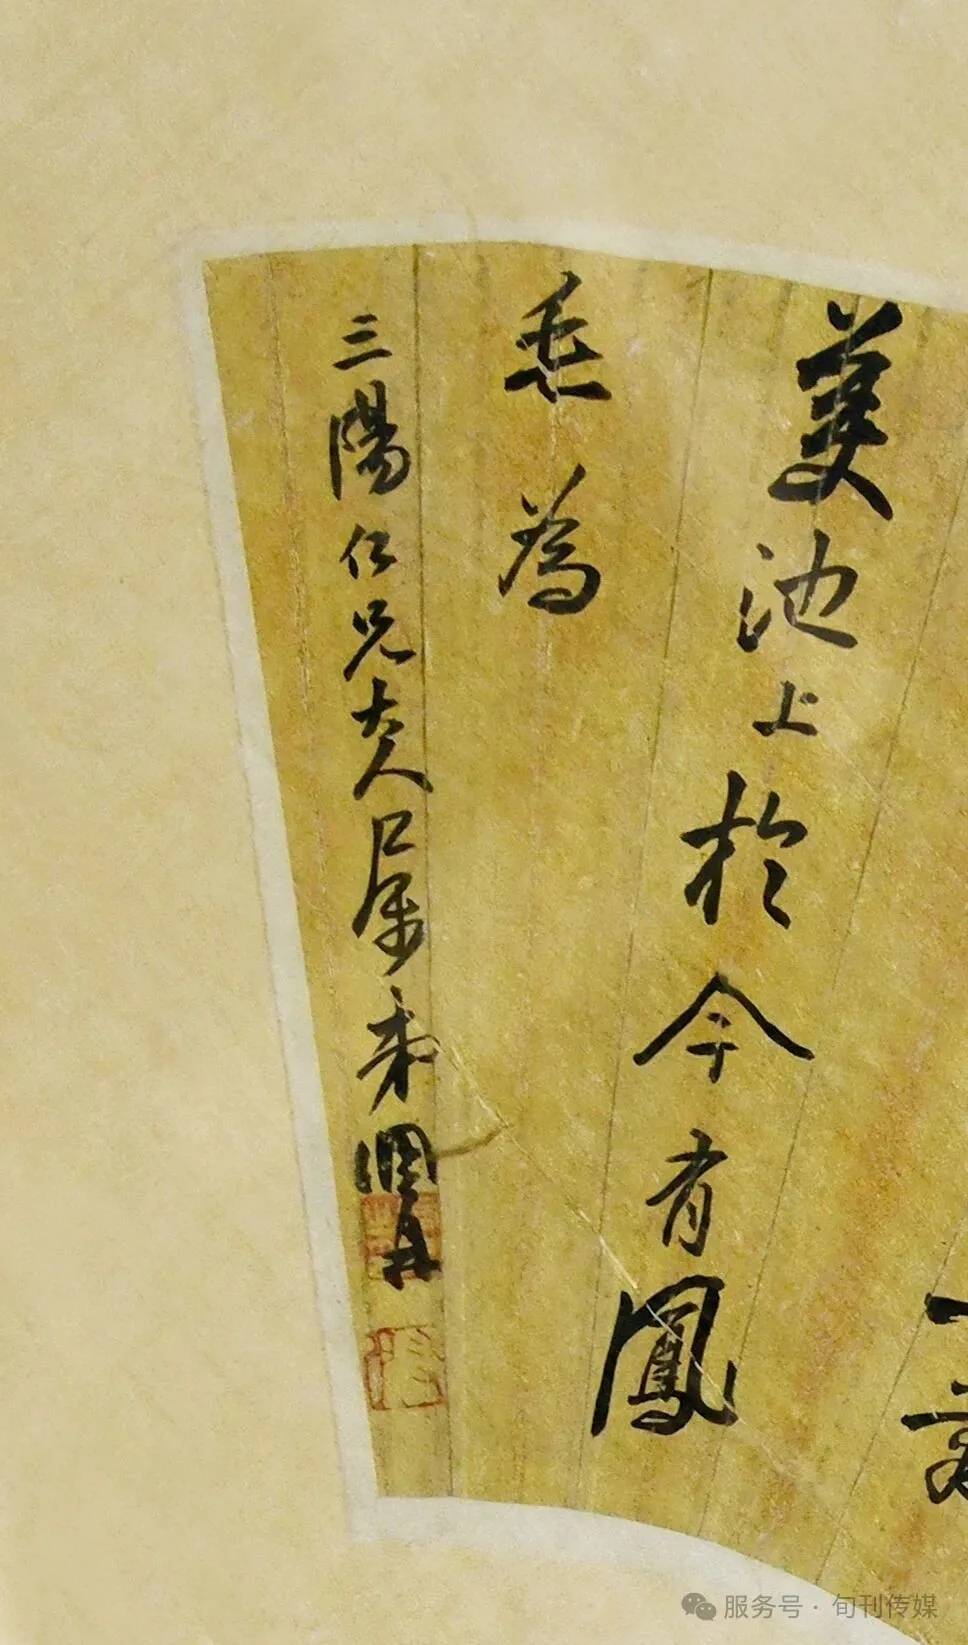 美池上於今有鳳
毛為
三陽仁兄大人属
服务号 · 旬刊传媒